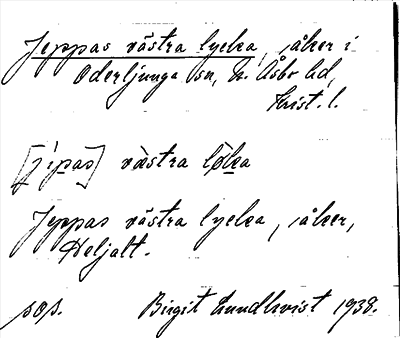 Jeppas västra lycka, åker i
Oderljunga sn, N. Åsbo hd,
Krist. l.
[jìpas] västra løka
Jeppas västra lycka, åker,
Heljalt.
sop. Birgit Lundkvist 1938.